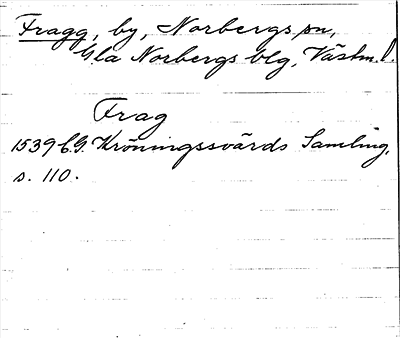 Fragg, by, Norbergs sn,
Gla Norbergs blg, Västm. l.
Frag
1539 C.G. Kröningssvärds Samling,
s. 110.